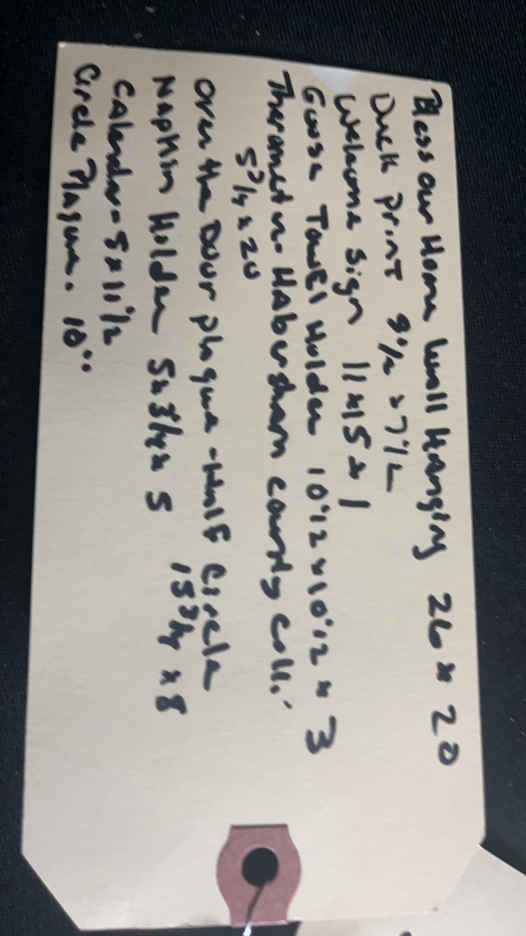 Bless our Home Wall Hanging 26 x 20
Duck print 9 1/2 x 7 1/2
Welcome Sign 11 x 15 x 1
Goose Towel Holder 10 1/2 x 10 1/2 x 3
Thermometer - Habersham county coll.
5 3/4 x 20
over the Door plaque - Half Circle
15 3/4 x 8
Napkin Holder 5 x 3/4 x 5
Calendar - 8 x 11 1/2
Circle Plaque. 10"